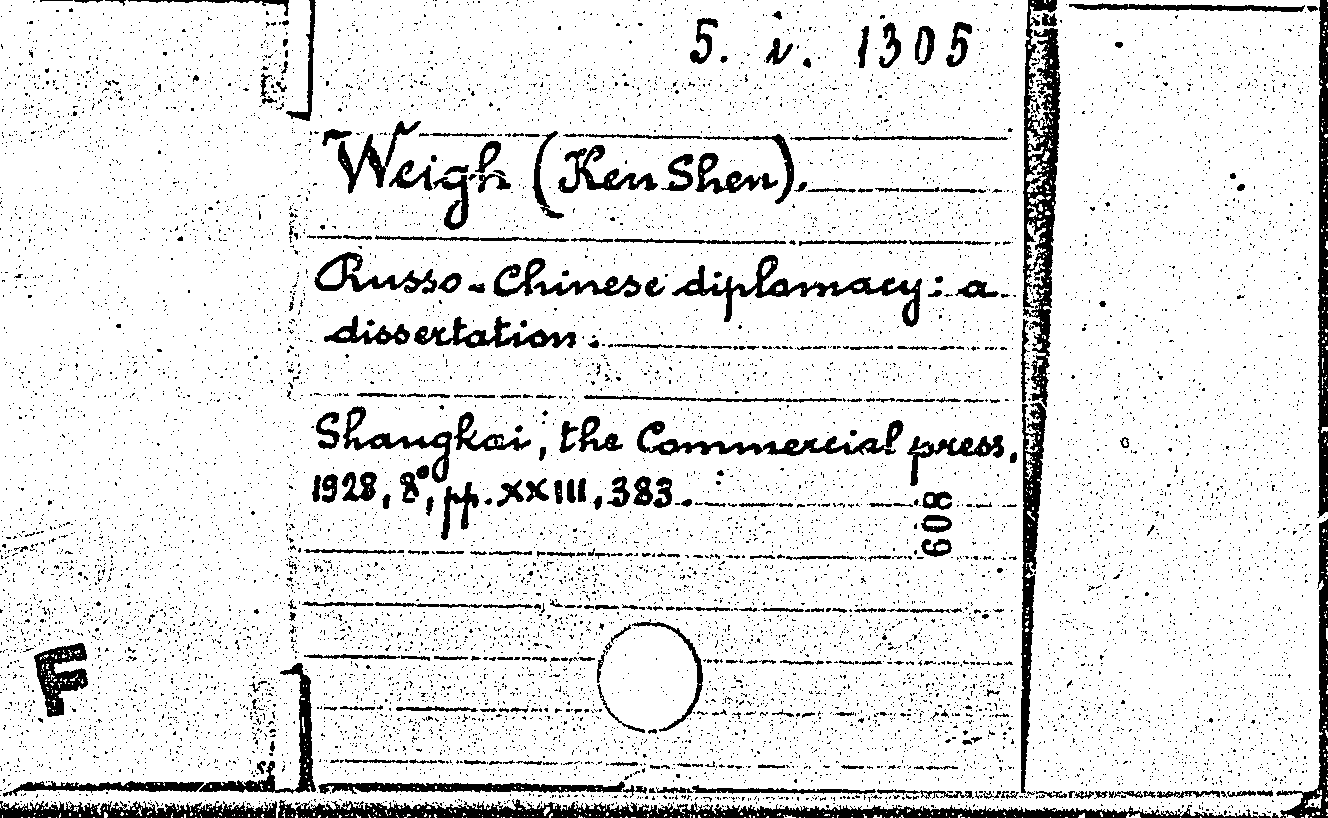 5. i. 1305
Weigh (Ken Shen).
Russo-Chinese diplomacy: a
dissertation.
Shanghai, the Commercial press.
1928, 8°, pp. XXIII, 383.
608
F